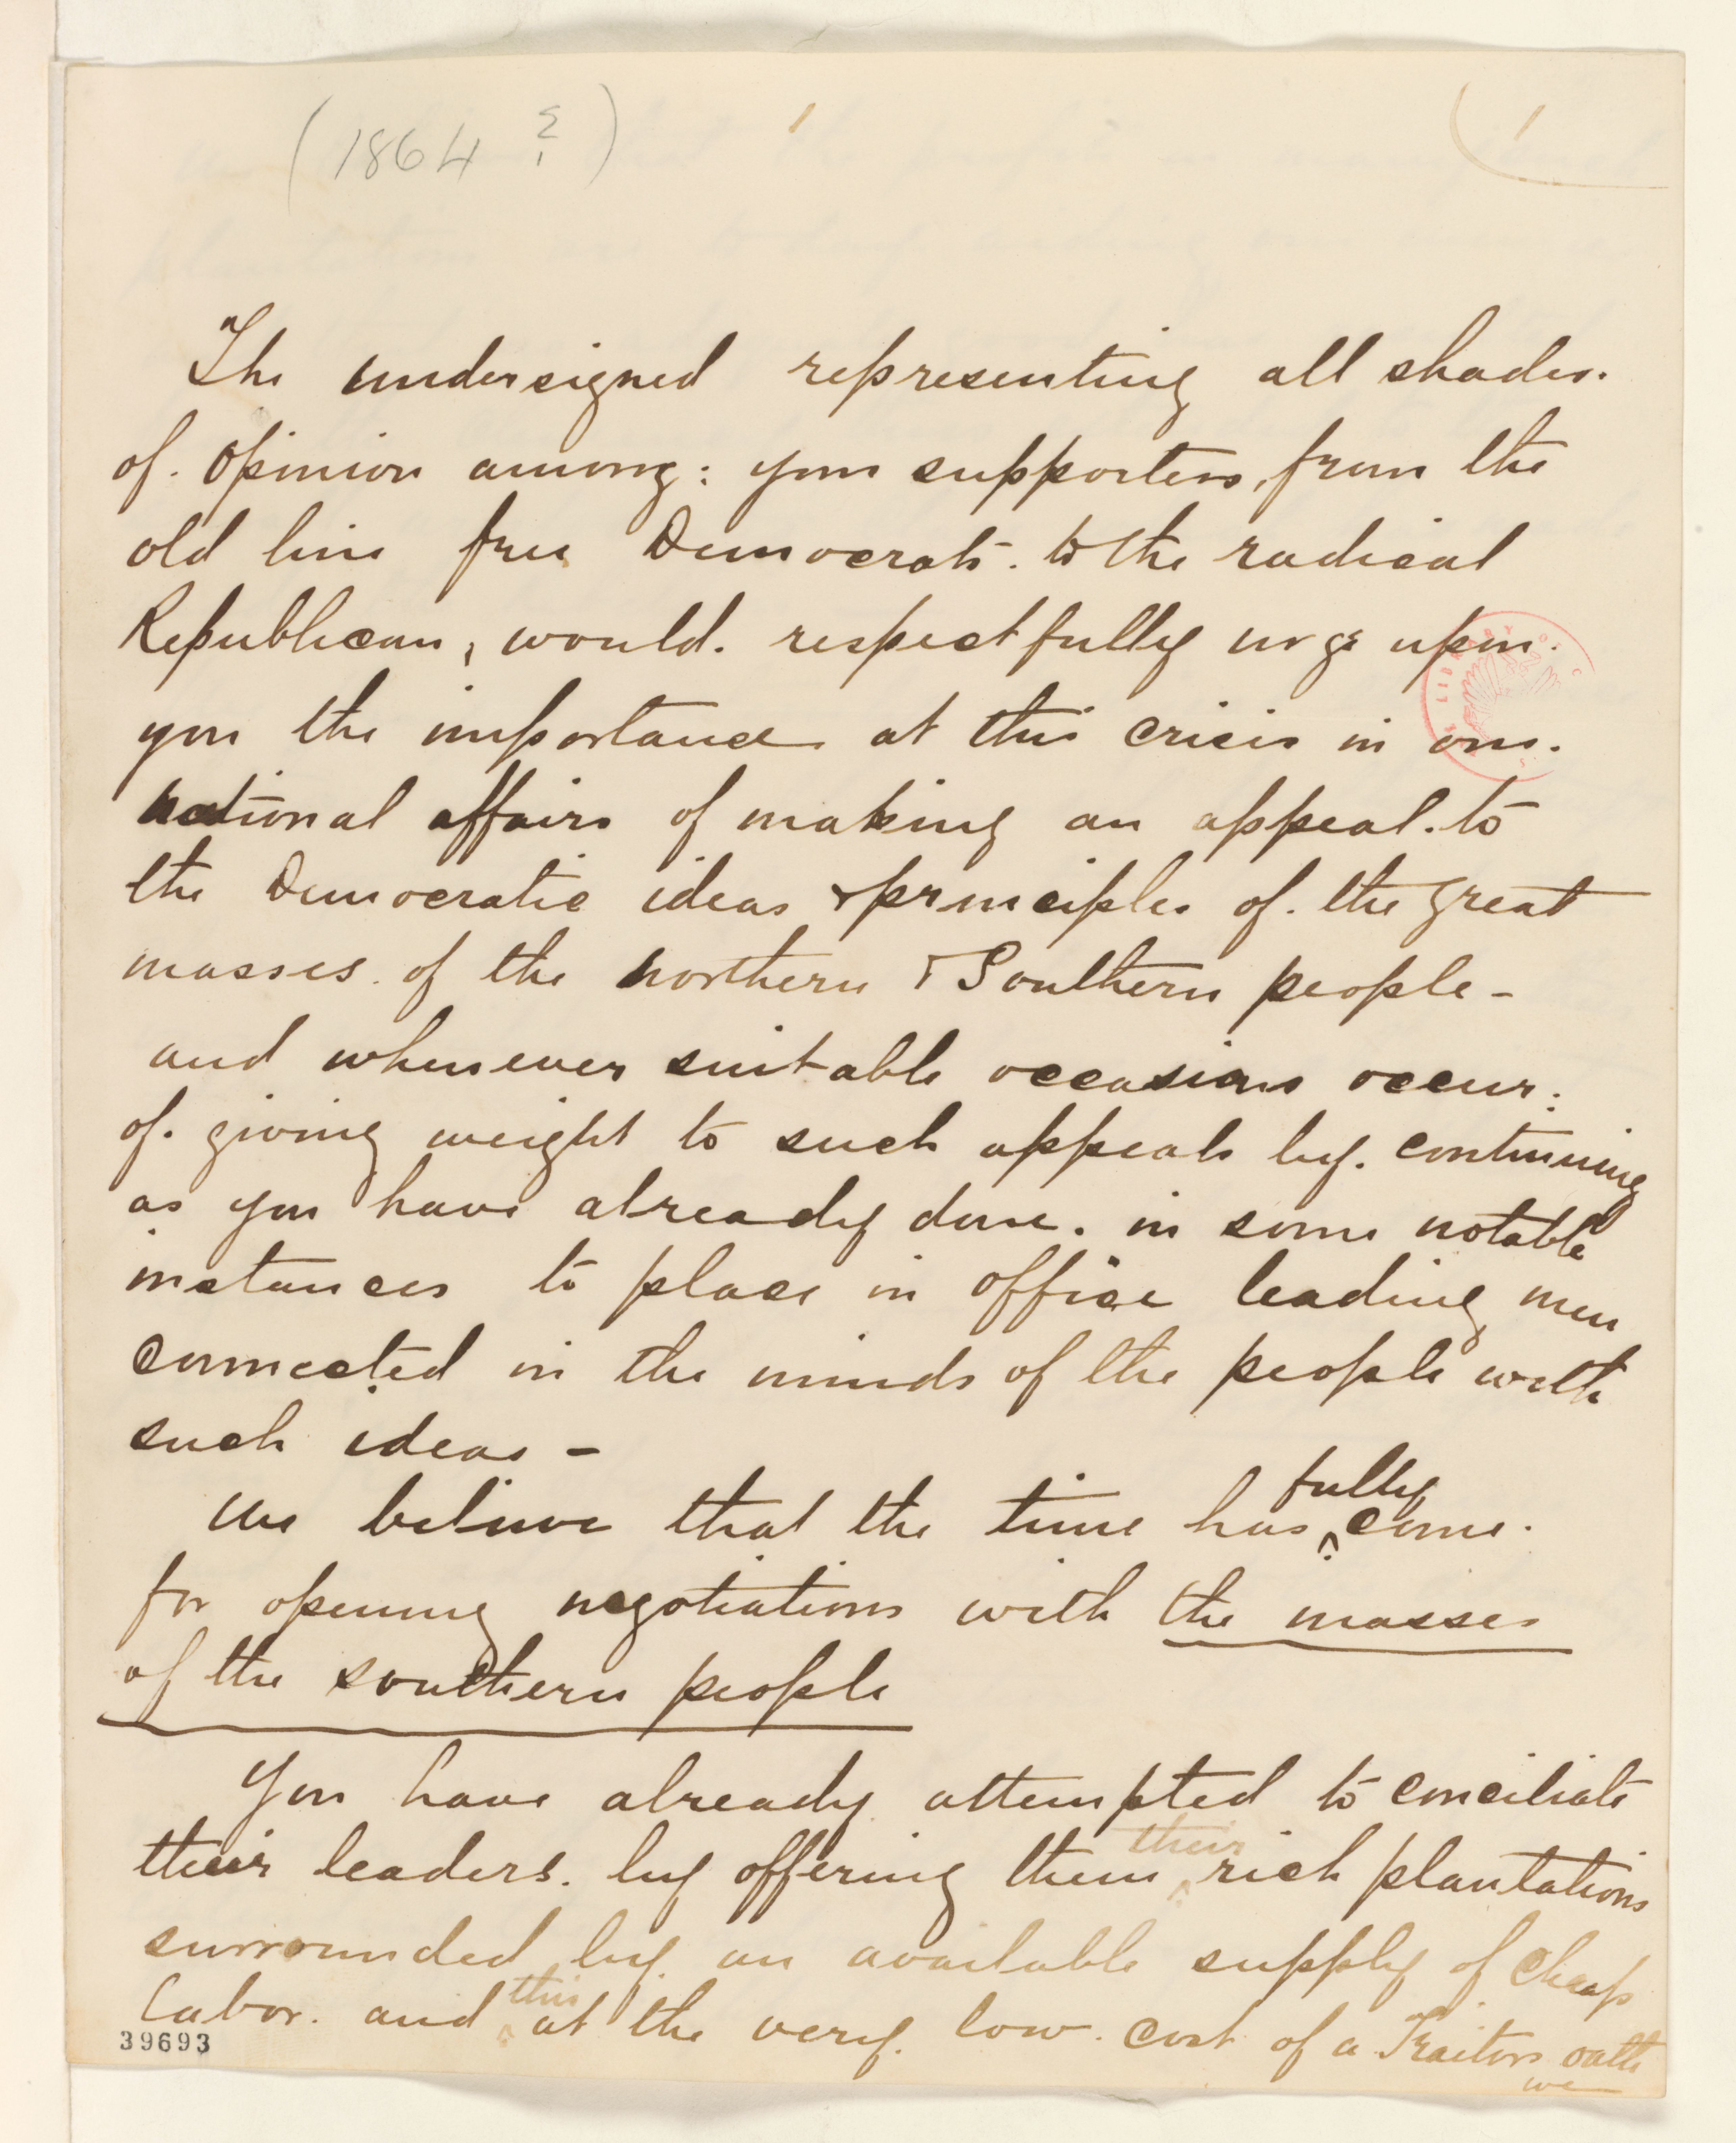 (1864 ?)
1
1
The undersigned representing all shades.
of. Opinion among: your supporters, from the
old line free Democrats. to the radical
Republican, would. respectfully urge upon.
you the importance at this crisis in our.
national affairs of making an appeal. to
the Democratic ideas & principles of. the great
masses. of the northern & Southern people -
and whenever suitable occasions occur:
of. giving weight to such appeals by. continuing
as you have already done. in some notable
instances to place in office leading men
connected in the minds of the people with
such ideas -
We believe that the time has ^fully come.
for opening negotiations with the masses
of the southern people
You have already attempted to conciliate
their leaders. by offering them ^their rich plantations
surrounded by. an available supply of cheap
labor. and ^this at the very. low. cost of a Traitors oath
we
39693